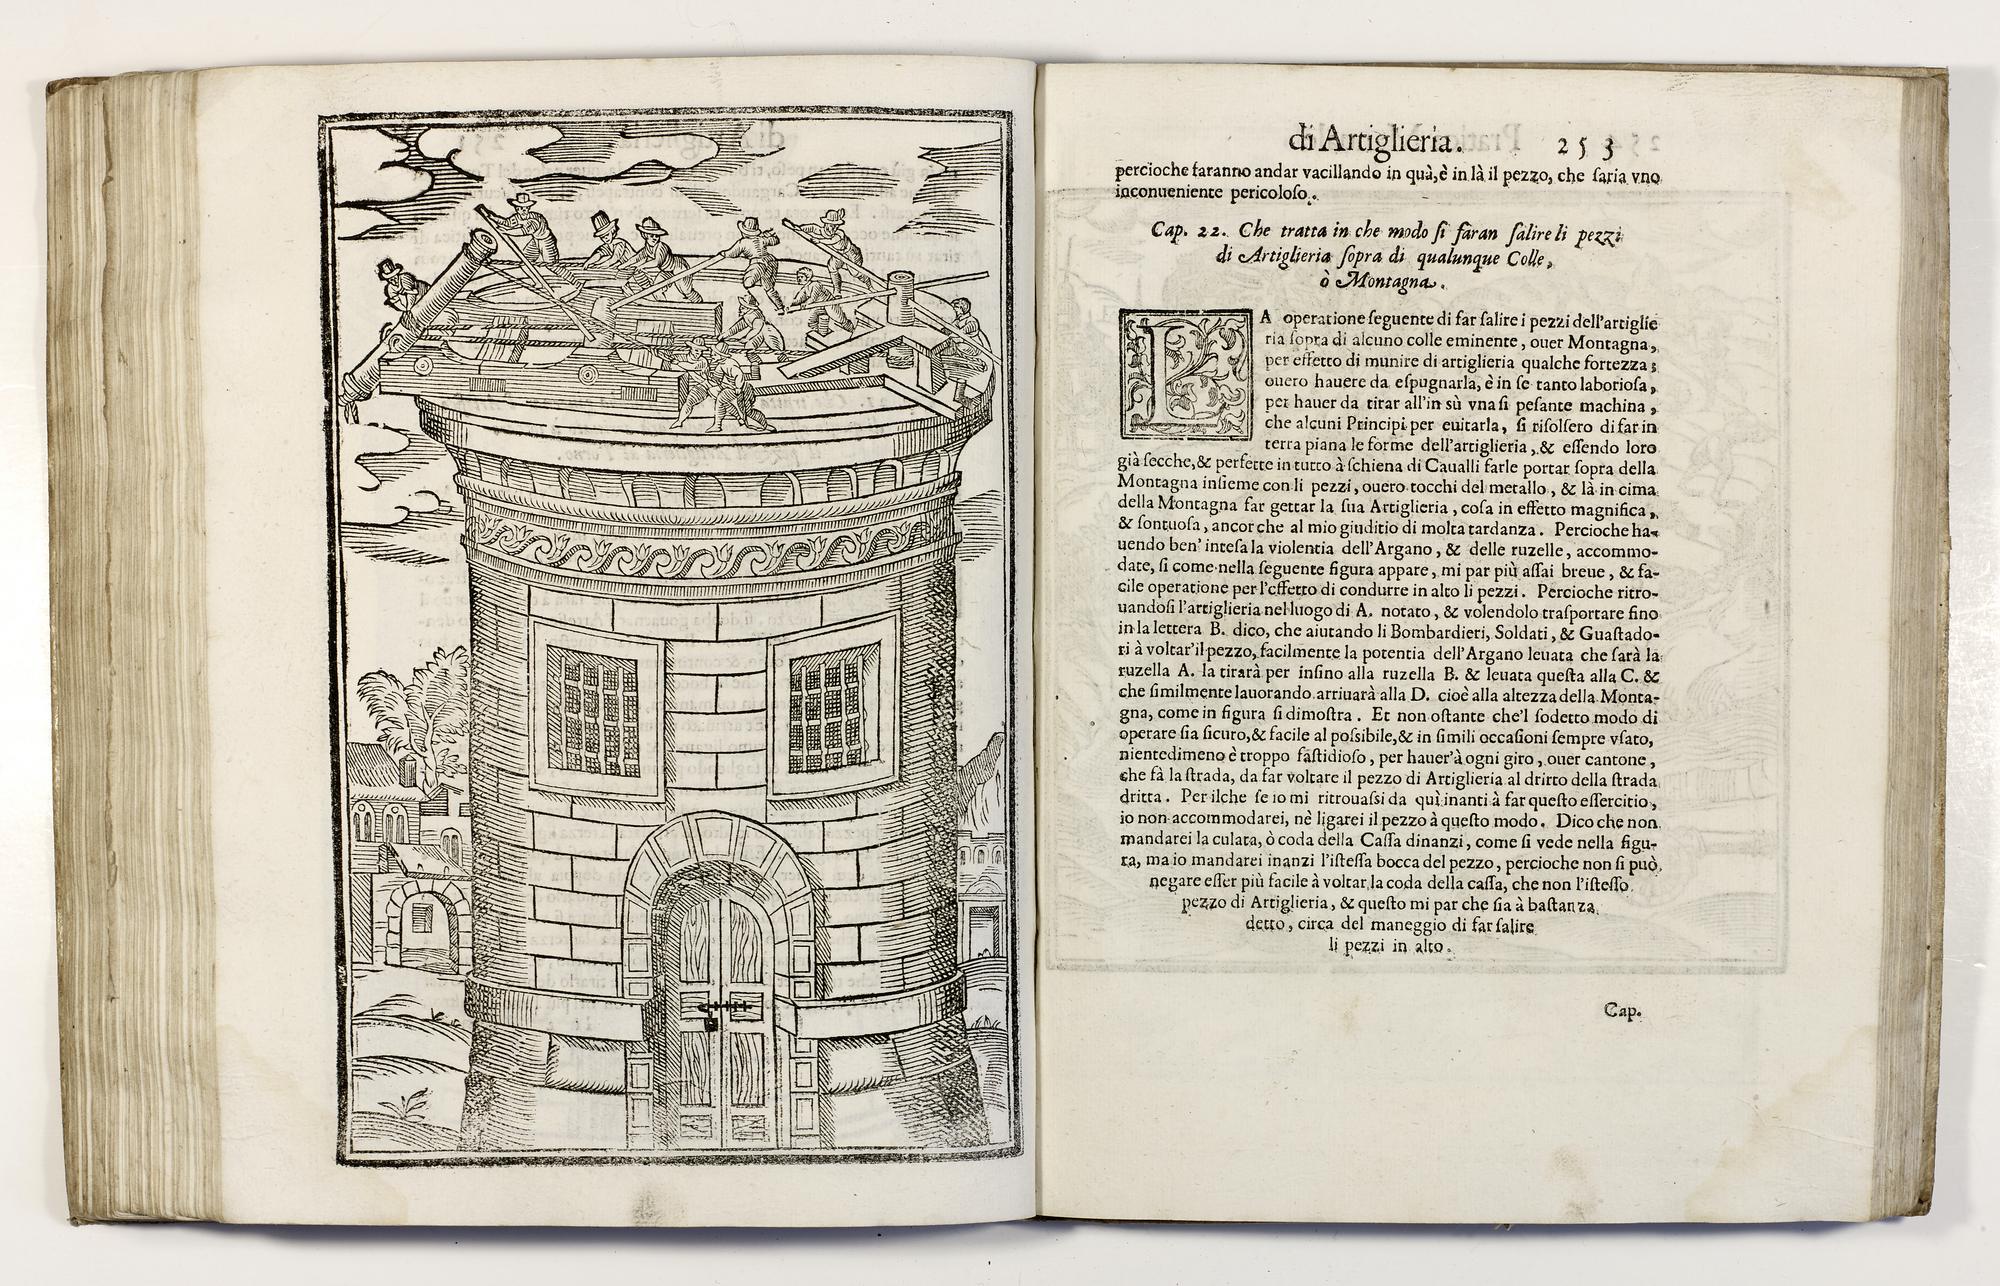 di Artiglieria. 253
percioche faranno andar vacillando in quà, è in là il pezzo, che ſaria vno
inconueniente pericoloſo.
Cap. 22. Che tratta in che modo ſi faran ſalire li pezzi
di Artiglieria ſopra di qualunque Colle,
ò Montagna.
LA operatione ſeguente di far ſalire i pezzi dell'artiglie
ria ſopra di alcuno colle eminente, ouer Montagna,
per effetto di munire di artiglieria qualche fortezza;
ouero hauere da eſpugnarla, è in ſe tanto laborioſa,
per hauer da tirar all'in sù vna ſi peſante machina,
che alcuni Principi per euitarla, ſi riſolſero di far in
terra piana le forme dell'artiglieria, & eſſendo loro
già ſecche, & perfette in tutto à ſchiena di Caualli farle portar ſopra della
Montagna inſieme con li pezzi, ouero tocchi del metallo, & là in cima
della Montagna far gettar la ſua Artiglieria, coſa in effetto magnifica,
& ſontuoſa, ancor che al mio giuditio di molta tardanza. Percioche ha-
uendo ben' inteſa la violentia dell'Argano, & delle ruzelle, accommo-
date, ſi come nella ſeguente figura appare, mi par più aſſai breue, & fa-
cile operatione per l'effetto di condurre in alto li pezzi. Percioche ritro-
uandoſi l'artiglieria nel luogo di A. notato, & volendolo traſportare fino
in la lettera B. dico, che aiutando li Bombardieri, Soldati, & Guaſtado-
ri à voltar'il pezzo, facilmente la potentia dell'Argano leuata che ſarà la
ruzella A. la tirarà per inſino alla ruzella B. & leuata queſta alla C. &
che ſimilmente lauorando arriuarà alla D. cioè alla altezza della Monta-
gna, come in figura ſi dimoſtra. Et non oſtante che'l ſodetto modo di
operare ſia ſicuro, & facile al poſsibile, & in ſimili occaſioni ſempre vſato,
nientedimeno è troppo faſtidioſo, per hauer'à ogni giro, ouer cantone,
che fà la ſtrada, da far voltare il pezzo di Artiglieria al dritto della ſtrada
dritta. Per ilche ſe io mi ritrouaſsi da quì inanti à far queſto eſſercitio,
io non accommodarei, nè ligarei il pezzo à queſto modo. Dico che non
mandarei la culata, ò coda della Caſſa dinanzi, come ſi vede nella figu-
ra, ma io mandarei inanzi l'iſteſſa bocca del pezzo, percioche non ſi può
negare eſſer più facile à voltar la coda della caſſa, che non l'iſteſſo
pezzo di Artiglieria, & queſto mi par che ſia à baſtanza
detto, circa del maneggio di far ſalire
li pezzi in alto.
Cap.